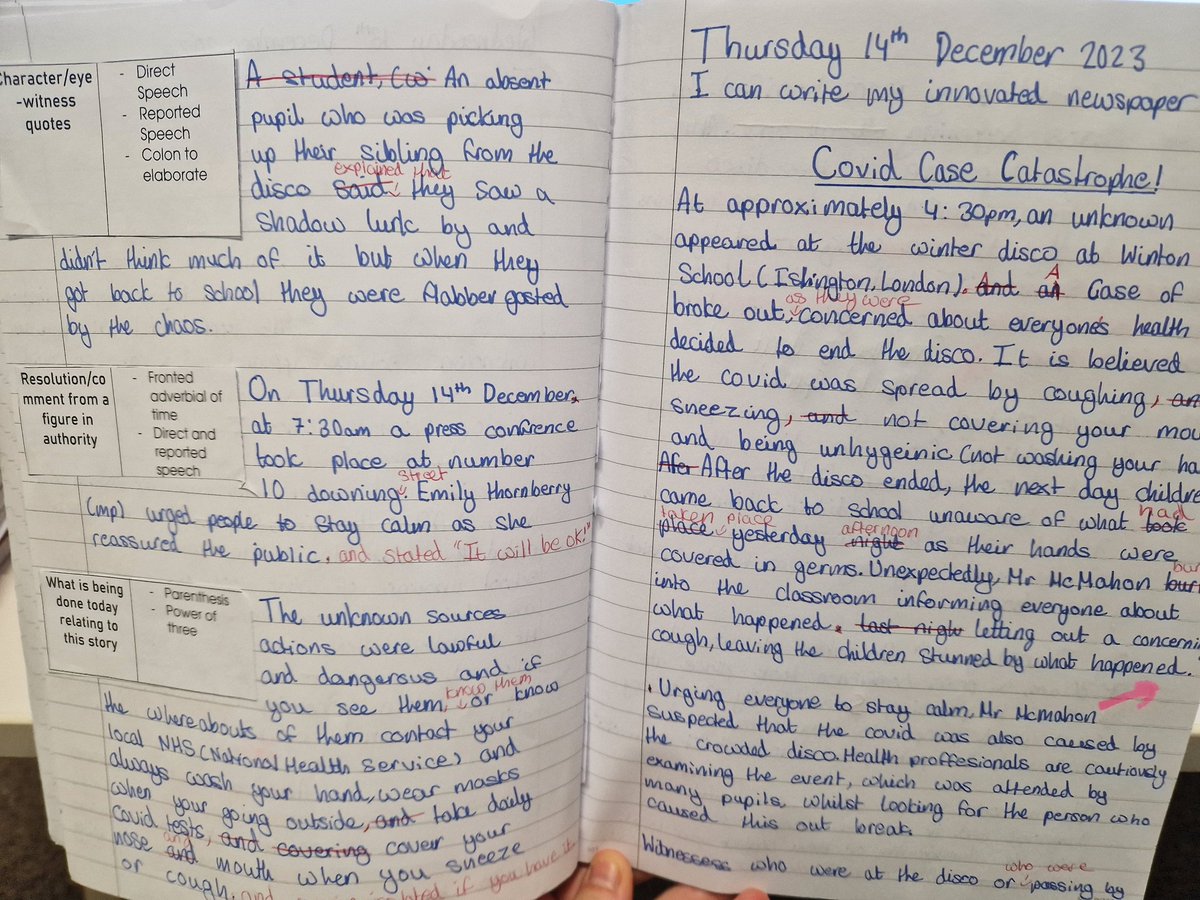 Character/eye
-witness
quotes
- Direct
Speech
- Reported
Speech
- Colon to
elaborate
A student, (w An absent
pupil who was picking
up their sibling from the
explained that
disco said they saw a
shadow lurk by and
didn't think much of it but when they
got back to school they were flabber gasted
by the chaos.
Resolution/co
mment from a
figure in
authority
- Fronted
adverbial of
time
- Direct and
reported
speech
On Thursday 14th December,
at 7:30am a press conference
took place at number
street
10 downing. Emily thornberry
(mp) urged people to stay calm as she
reassured the public. and stated "It will be ok!"
What is being
done today
relating to
this story
- Parenthesis
- Power of
three
The unknown sources
actions were lawful
and dangerous and if
know them
you see them, or know
the whereabouts of them contact your
local NHS (National Health Service) and
always wash your hand, wear masks
when your going outside, and take daily
Covid tests, and covering cover your
and
nose and mouth when you sneeze
or cough. and if you have it
Thursday 14th December 2023
I can write my innovated newspaper
Covid Case Catastrophe!
At approximately 4:30pm, an unknown
appeared at the winter disco at Winton
A
School (Islington, London). And a Case of
as they were
broke out, concerned about everyone's health
decided to end the disco. It is believed
the covid was spread by coughing, an
sneezing, and not covering your mou
and being unhygeinic (not washing your ha
Afer After the disco ended, the next day childre
had
came back to school unaware of what took
taken place afternoon
place yesterday night as their hands were
bur
covered in germs. Unexpectedly, Mr McMahon burt
into the classroom informing everyone about
what happened. last nigh letting out a concerni
cough, leaving the children stunned by what happened.
Urging everyone to stay calm, Mr Mcmahon
suspected that the covid was also caused by
the crowded disco. Health proffesionals are cautiously
examining the event, which was attended by
many pupils, whilst looking for the person who
caused this out break.
who were
Witnessess who were at the disco or passing by